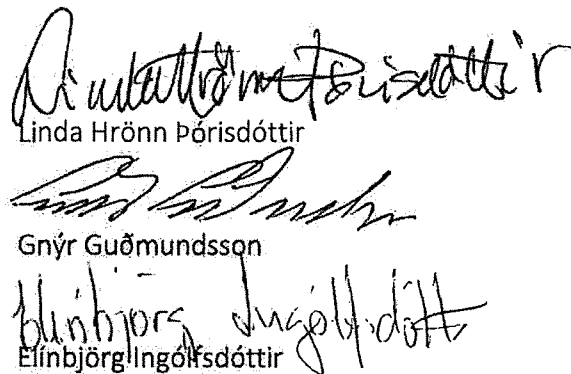 Linda Hrönn Þórisdóttir
Linda Hrönn Þórisdóttir
Gnýr Guðmundsson
Elínbjörg Ingólfsdótt
Elínbjörg Ingólfsdóttir